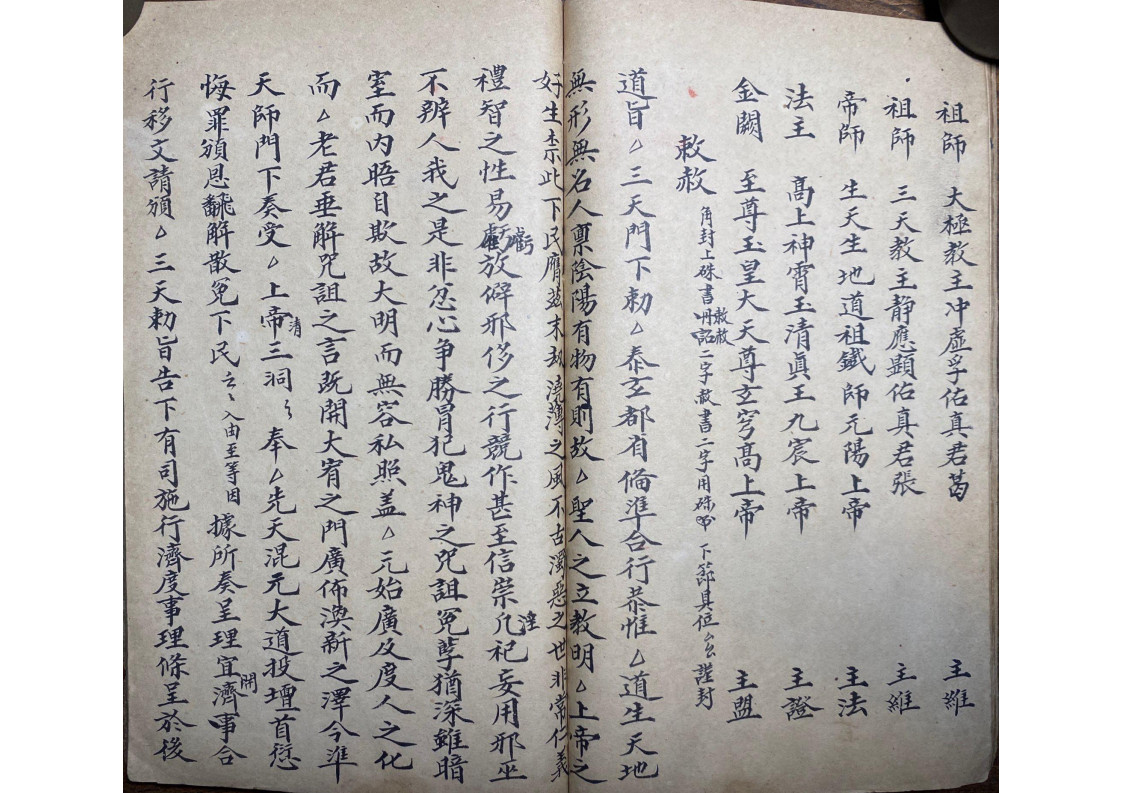 祖師 大極教主冲虛孚佑真君葛 主維
祖師 三天教主静應顯佑真君張 主維
帝師 生天生地道祖鐵師元陽上帝 主法
法主 高上神霄玉清真王九宸上帝 主證
金闕 至尊玉皇大天尊玄穹高上帝 主盟
敕赦 角封上硃書敕赦二字赦書二字用硃 下節具位 謹封
道旨△三天門下勅△泰玄都有偹準合行恭惟△道生天地
無形無名人禀陰陽有物有則故△聖人之立教明△上帝之
好生柰此下民膺茲末劫澆薄之風不古濁惡之世非常仁義
禮智之性易虧放僻邪侈之行競作甚至信崇淫祀妄用邪巫
不辨人我之是非忿心争勝冒犯鬼神之咒詛冤孽猶深雖暗
室而内晤目欺故大明而無容私照盖△元始廣反度人之化
而△老君垂解咒詛之言既開大宥之門廣佈渙新之澤今準
天師門下奏受△上清三洞々奉△先天混元大道投壇首愆
悔罪頒恩飜解散冤下民云々入由至等因據所奏呈理宜開濟事合
行移文請頒△三天勅旨告下有司施行濟度事理條呈於後